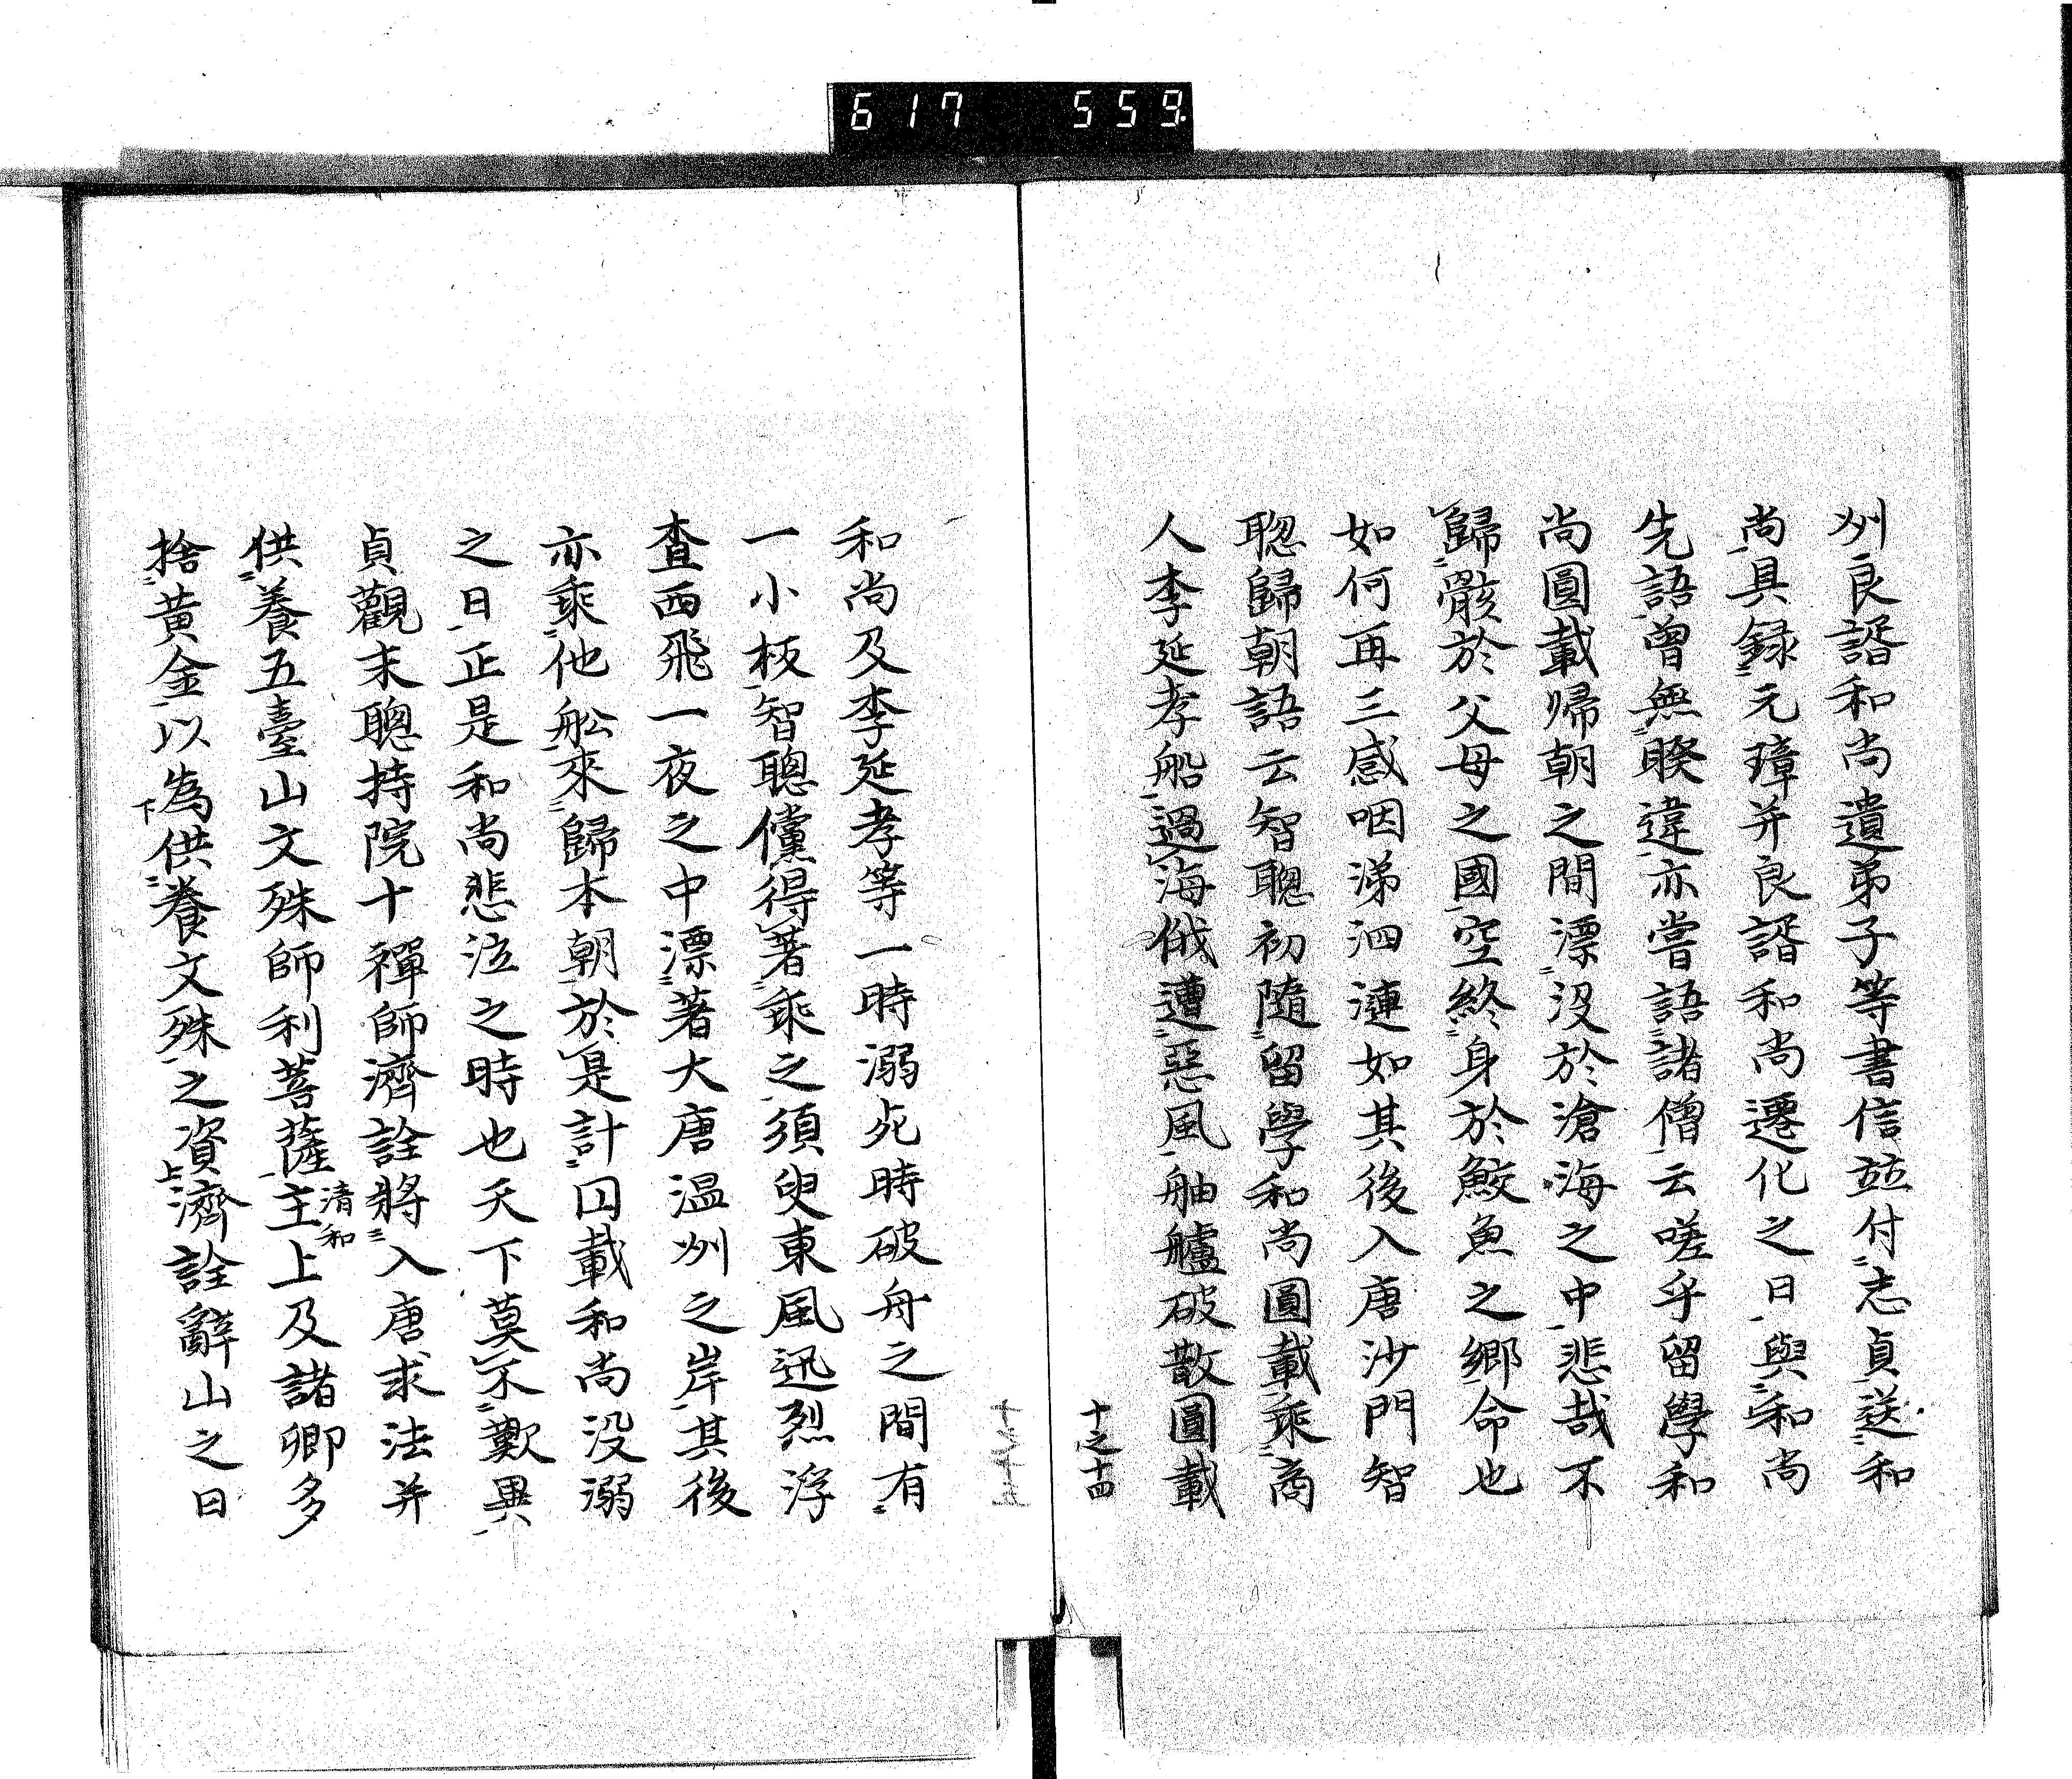 617 559
州良諝和尚遺弟子等書信並付志貞送和
尚具録元璋并良諝和尚遷化之日與和尚
先語曾無睽違亦嘗語諸僧云嗟乎留學和
尚圓載帰朝之間漂没於滄海之中悲哉不
歸骸於父母之國空終身於鮫魚之郷命也
如何再三感咽涕泗漣如其後入唐沙門智
聡歸朝語云智聰初隨留學和尚圓載乘商
人李延孝船過海俄遭惡風舳艫破散圓載
十之十四
和尚及李延孝等一時溺死時破舟之間有
一小板智聰儻得著乘之須臾東風迅烈浮
査西飛一夜之中漂著大唐温州之岸其後
亦乘他舩來歸本朝於是計円載和尚没溺
之日正是和尚悲泣之時也天下莫不歎異
貞觀末聰持院十禪師濟詮將入唐求法并
供養五臺山文殊師利菩薩主上及諸卿多
清和
捨黄金以為供養文殊之資濟詮辭山之日
下
上